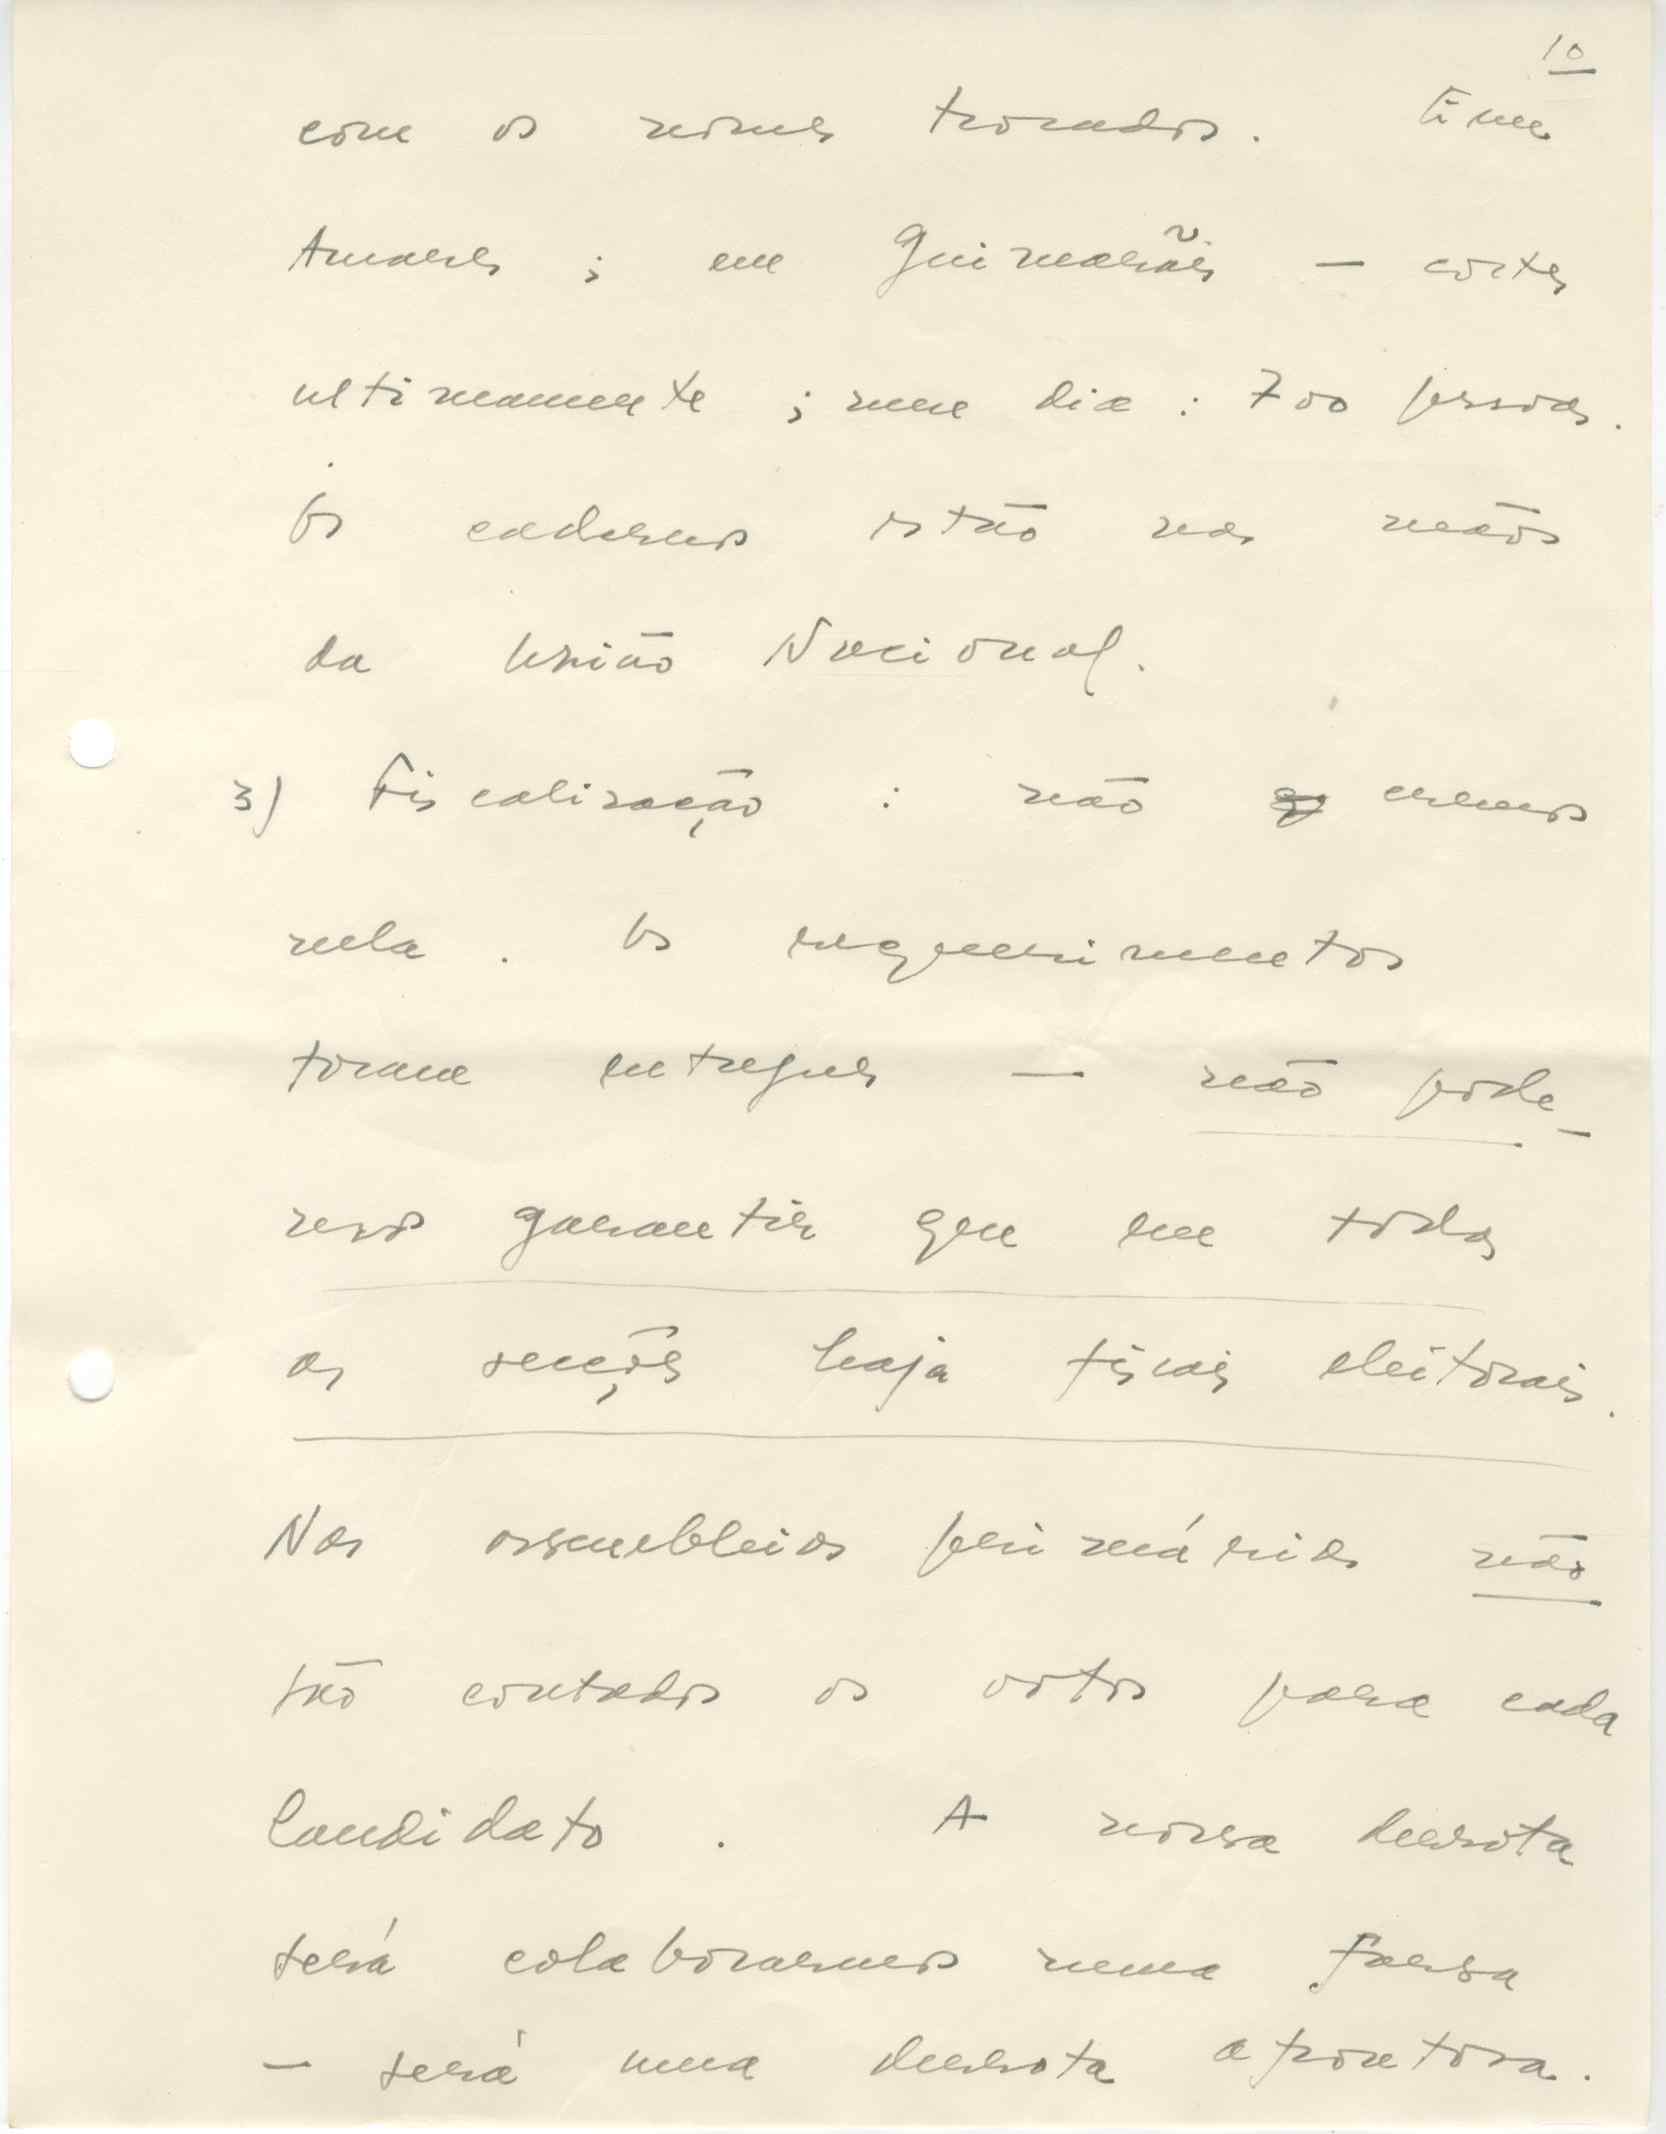 10
com os nomes trocados. Em
Amares ; em Guimarãis — cortes
ultimamente ; num dia : 700 pessoas.
Os cadernos estão nas mãos
da União Nacional.
3) Fiscalização : não cremos
nela . Os requerimentos
foram entregues — não pode-
mos garantir que em todas
as secções haja fiscais eleitorais.
Nas assembleias primárias não
são contados os votos para cada
Candidato . A nossa derrota
será colaborarmos numa farsa
— será uma derrota afrontosa.